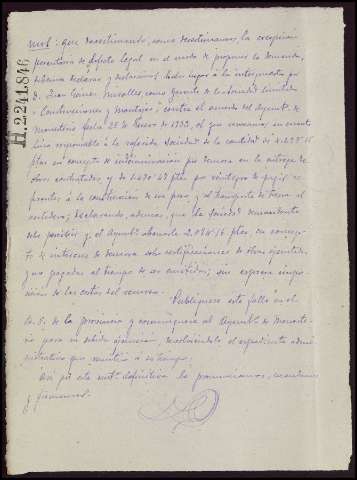 H.2.241.846
que desestimando, como desestimamos, la excepción
perentoria de defecto legal en el modo de proponer la demanda,
debemos declarar y declaramos haber lugar a la interpuesta por
D. Juan Gomez como Gerente de la Sociedad limitada
"Construcciones y Montajes" contra el acuerdo del Ayunt.º de
fecha 28 de Enero de 1933, el que revocamos en cuanto
hizo responsable a la referida Sociedad de la cantidad de
ptas en concepto de indemnización por demora en la entrega de
obras contratadas, y de 2.470'47 ptas por reintegro de
a la construcción de un pozo y al transporte de tierra al
vertedero; declarando, además, que la Sociedad demandante
debe percibir y el Ayunt.º abonarle 2.084'16 ptas, en concep-
to de intereses de demora sobre certificaciones de obras ejecutadas
y no pagadas al tiempo de ser emitidas; sin expresa impo-
sición de las costas del recurso.
Publíquese este fallo en el
B. O. de la provincia y comuníquese al Ayunt.º de
para su debida ejecución, devolviéndole el expediente admi-
nistrativo que remitió a su tiempo.
Así por esta sent.ª definitiva lo pronunciamos, mandamos
y firmamos.